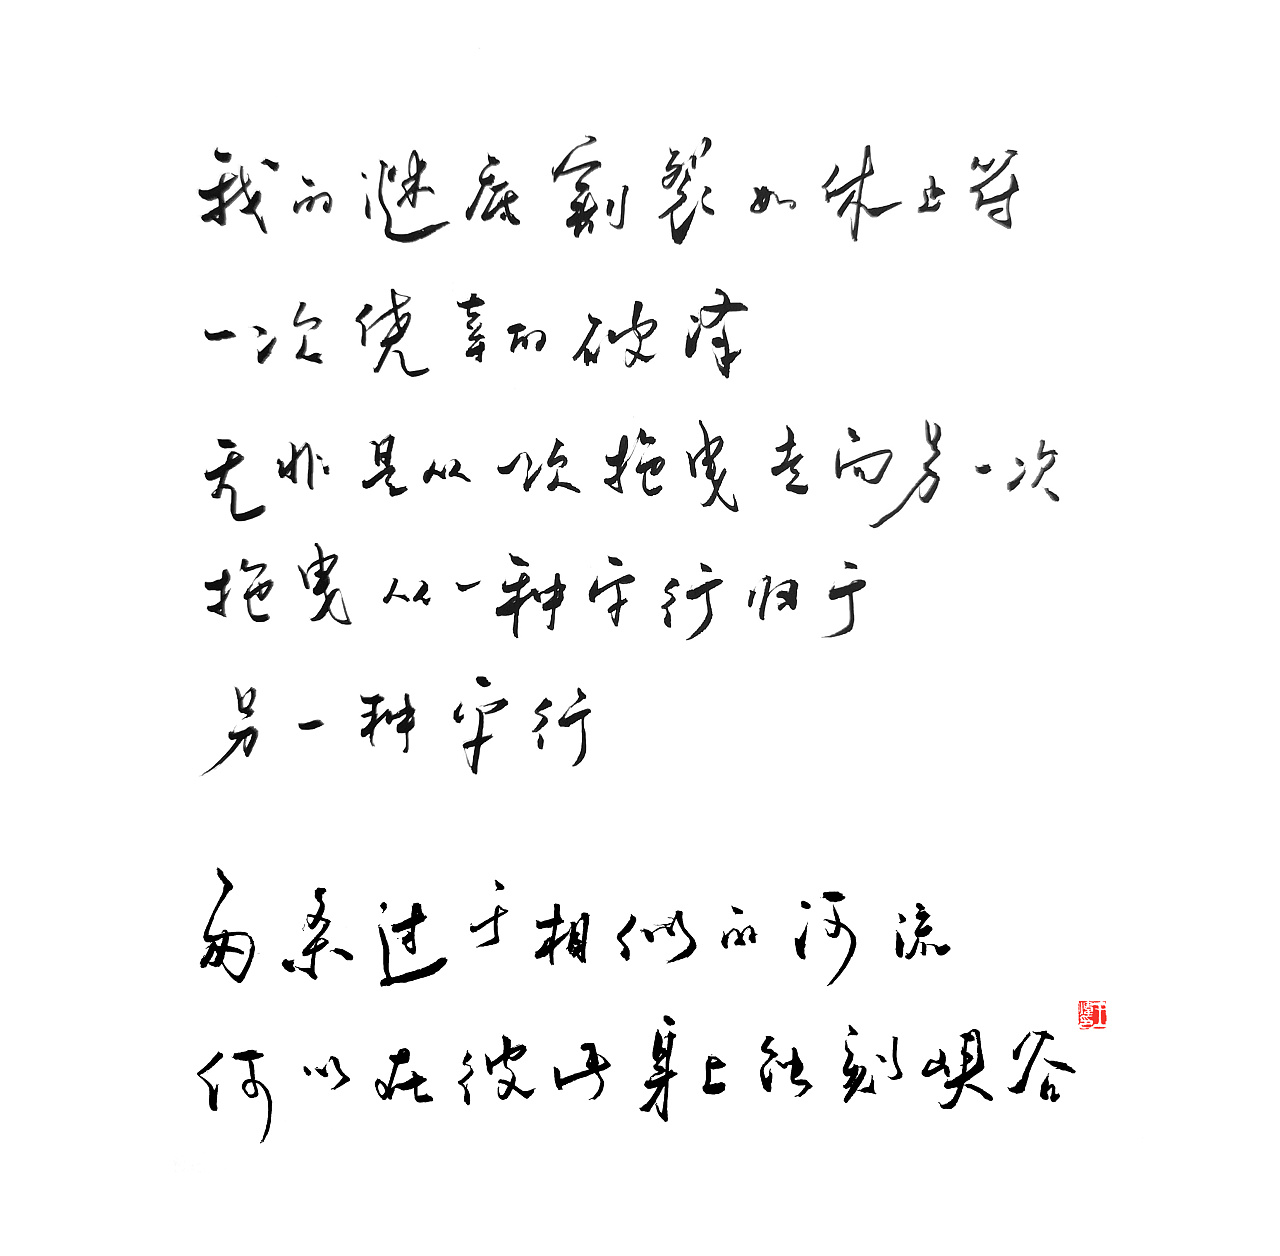 我的谜底割裂如休止符
一次侥幸的破译
无非是从一次拖曳走向另一次
拖曳从一种平行归于
另一种平行
两条过于相似的河流
何以在彼此身上蚀刻峡谷